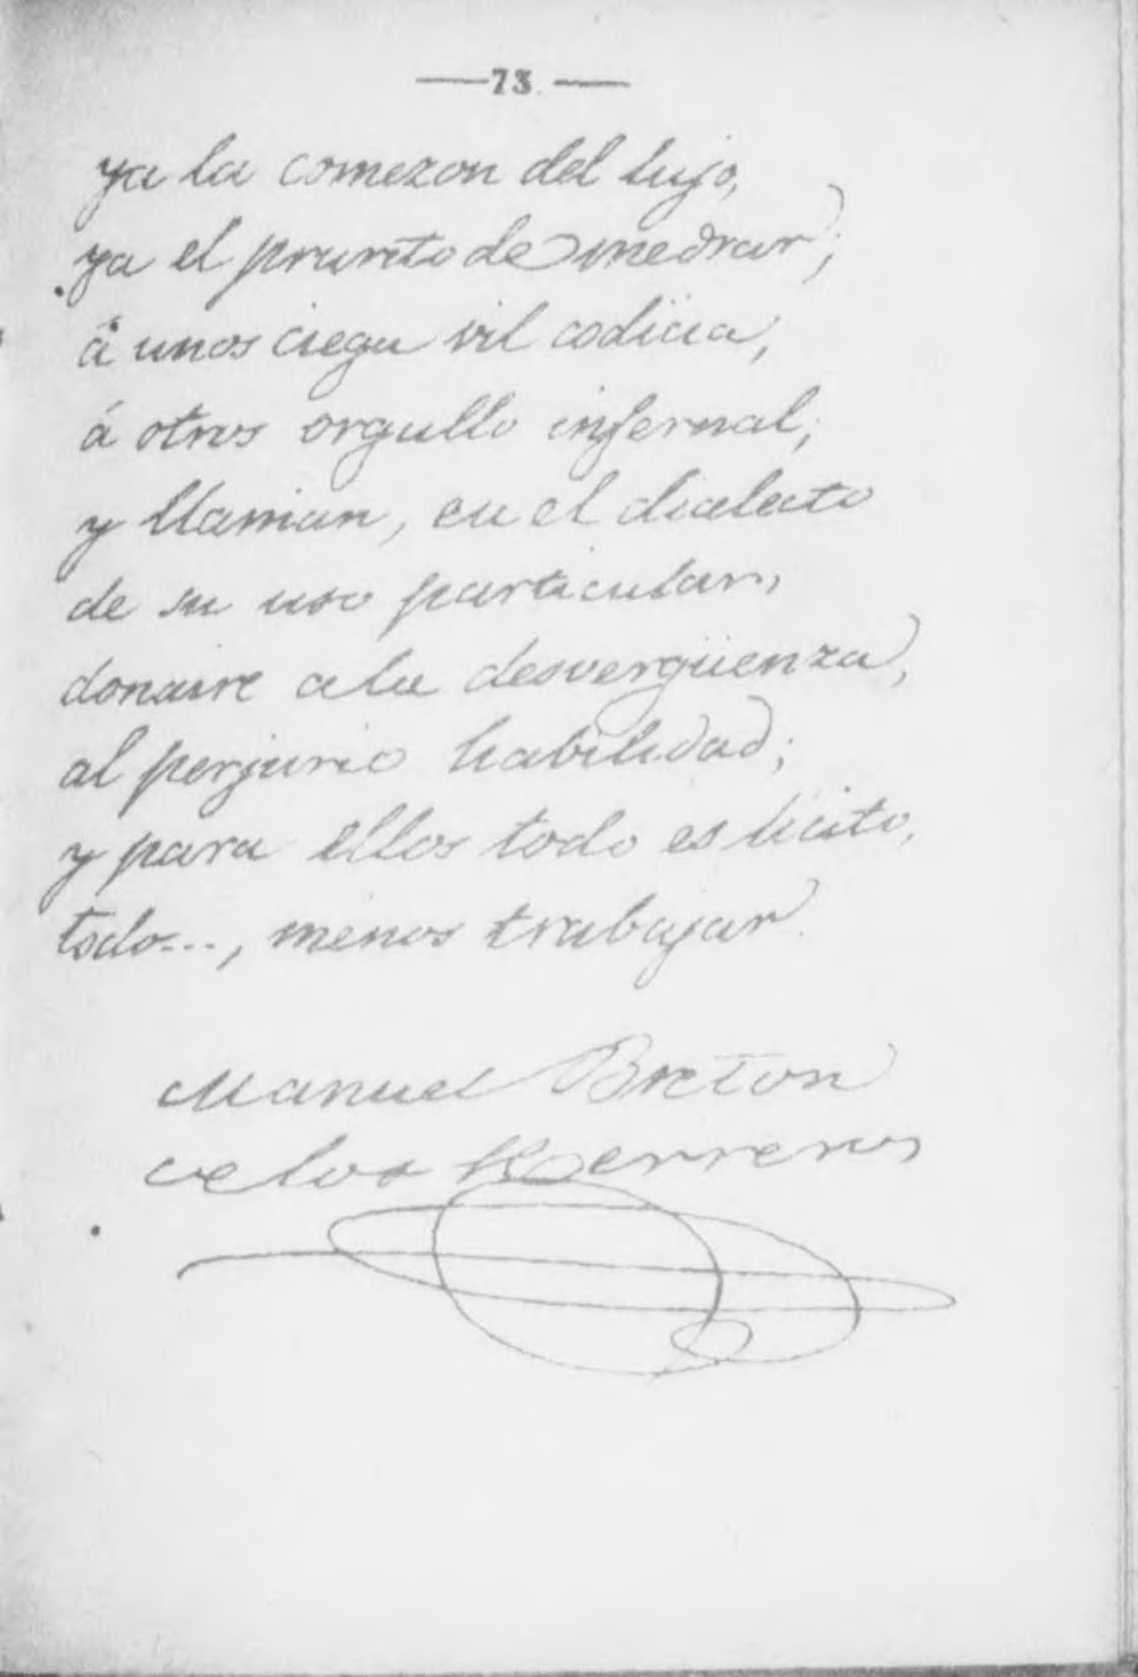 —73.—
ya la comezon del lujo,
ya el prurito de medrar;
á unos ciega vil codicia,
á otros orgullo infernal;
y llaman, en el dialecto
de su uso particular,
donaire a la desvergüenza,
al perjurio habilidad;
y para ellos todo es lícito,
todo..., menos trabajar.
Manuel Breton
de los Herreros